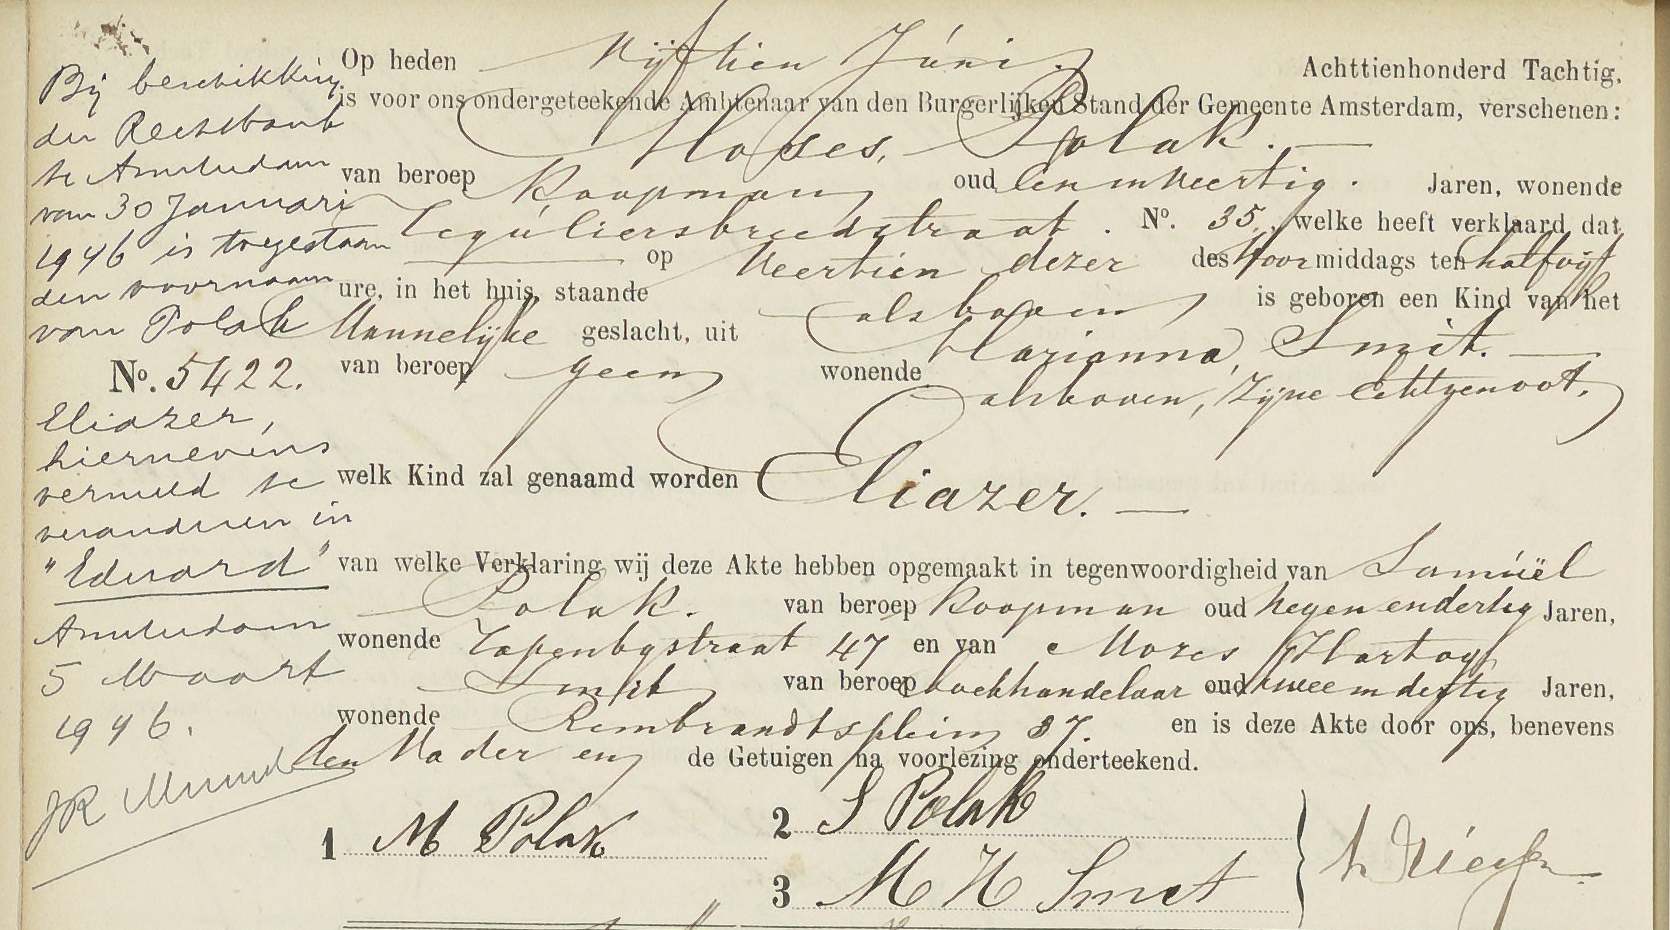 Bij beschikking
der Rechtbank
te Amsterdam
van 30 Januari
1946 is toegestaan
den voornaam
van Polak
No. 5422.
Eliazer,
hiernevens
vermeld te
veranderen in
"Eduard"
Amsterdam
5 Maart
1946.
JR
Op heden Vijftien Júni. Achttienhonderd Tachtig,
is voor ons ondergeteekende Ambtenaar van den Burgerlijken Stand der Gemeente Amsterdam, verschenen:
Moses, Polak.
van beroep Koopman oud Een en Veertig. Jaren, wonende
Regúliersbreedstraat. No. 35, welke heeft verklaard dat
op Veertien dezer des Voormiddags ten half vijf
ure, in het huis, staande alsboven is geboren een Kind van het
Mannelijke geslacht, uit Marianna, Smit.
van beroep geen wonende alsboven, Zijne Echtgenoot,
welk Kind zal genaamd worden Eliazer.
van welke Verklaring wij deze Akte hebben opgemaakt in tegenwoordigheid van Samúël
Polak. van beroep Koopman oud Negen en dertig Jaren,
wonende Rapenbgstraat 47 en van Mozes Hartog
Smit van beroep boekhandelaar oud twee en dertig Jaren,
wonende Rembrandtsplein 37. en is deze Akte door ons, benevens
den Vader en de Getuigen na voorlezing onderteekend.
1 M Polak
2 S Polak
3 M H Smit